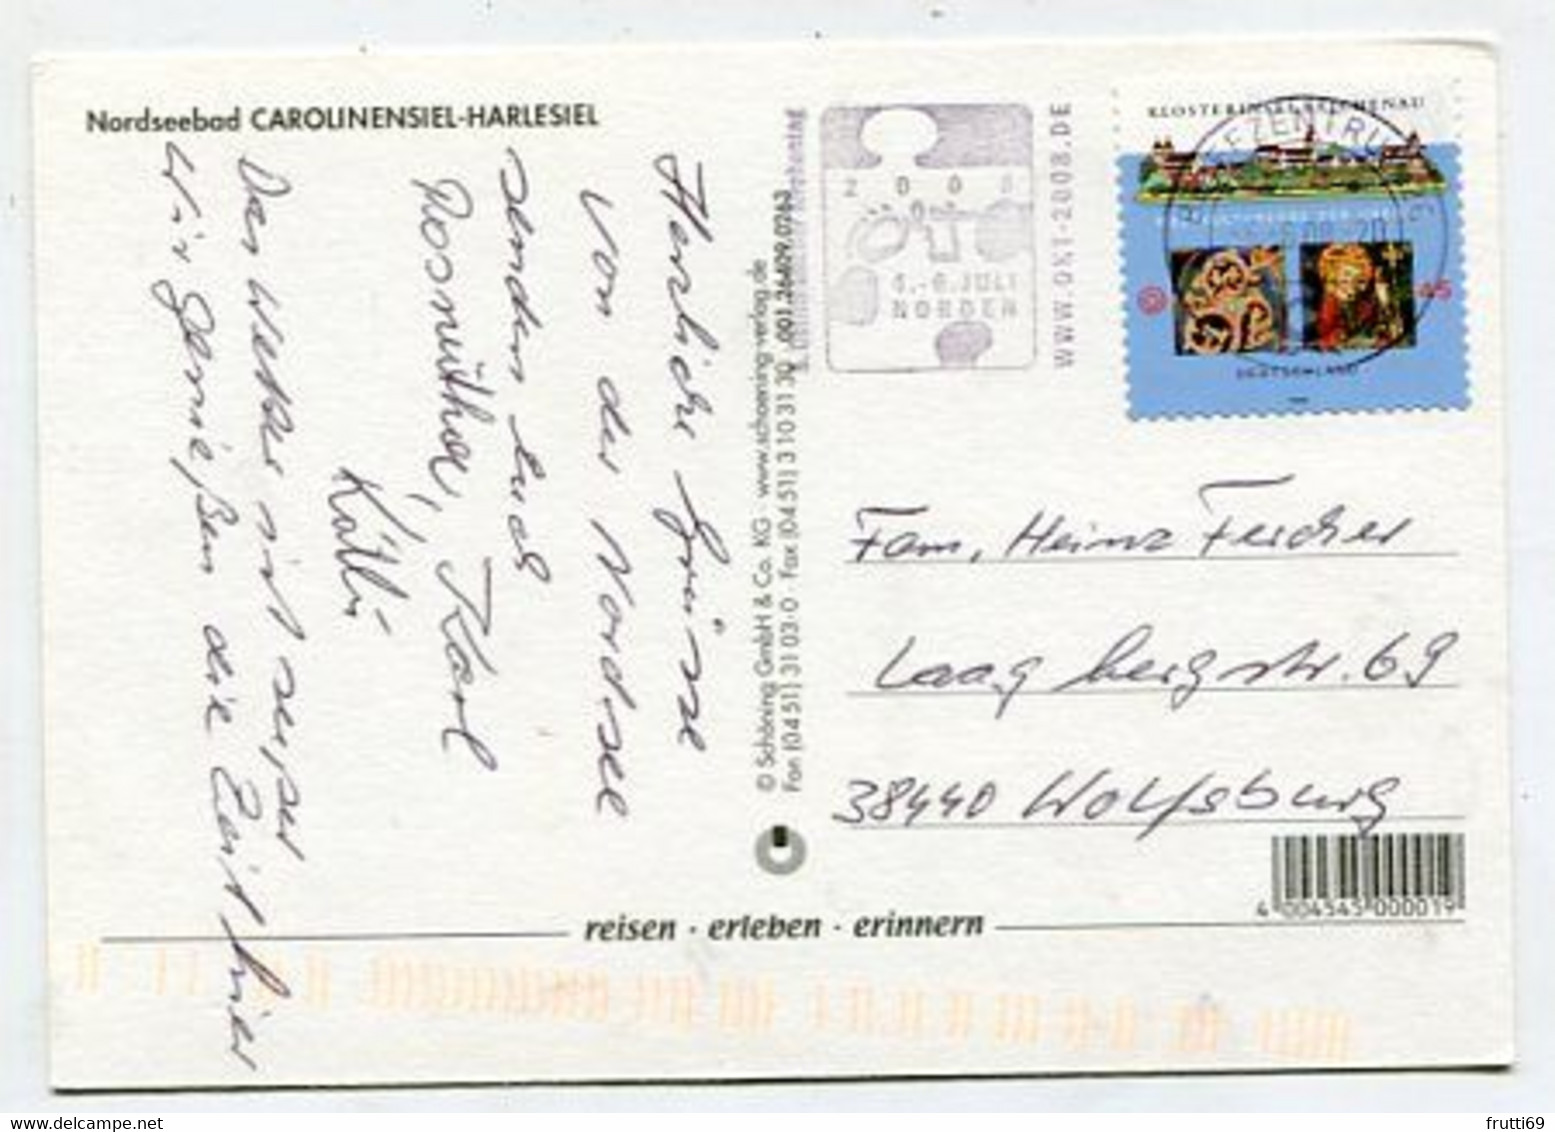 Nordseebad CAROLINENSIEL-HARLESIEL
Herzliche Grüsse
von der Nordsee
senden Euch
Rosmithe, Karl
Käthi
Das Wetter ist super
Wir genießen die Zeit hier
© Schöning GmbH & Co. KG · www.schoening-verlag.de
Fon (0451) 31 03-0 · Fax (0451) 3 10 31 30
2008
5.-6. JULI
NORDEN
WWW.OKT-2008.DE
KLOSTERINSEL REICHENAU
BRIEFZENTRUM
45
DEUTSCHLAND
Fam. Heinz Fescher
Laagbergstr. 69
38440 Wolfsburg
4 004545 000019
reisen · erleben · erinnern
frutti69